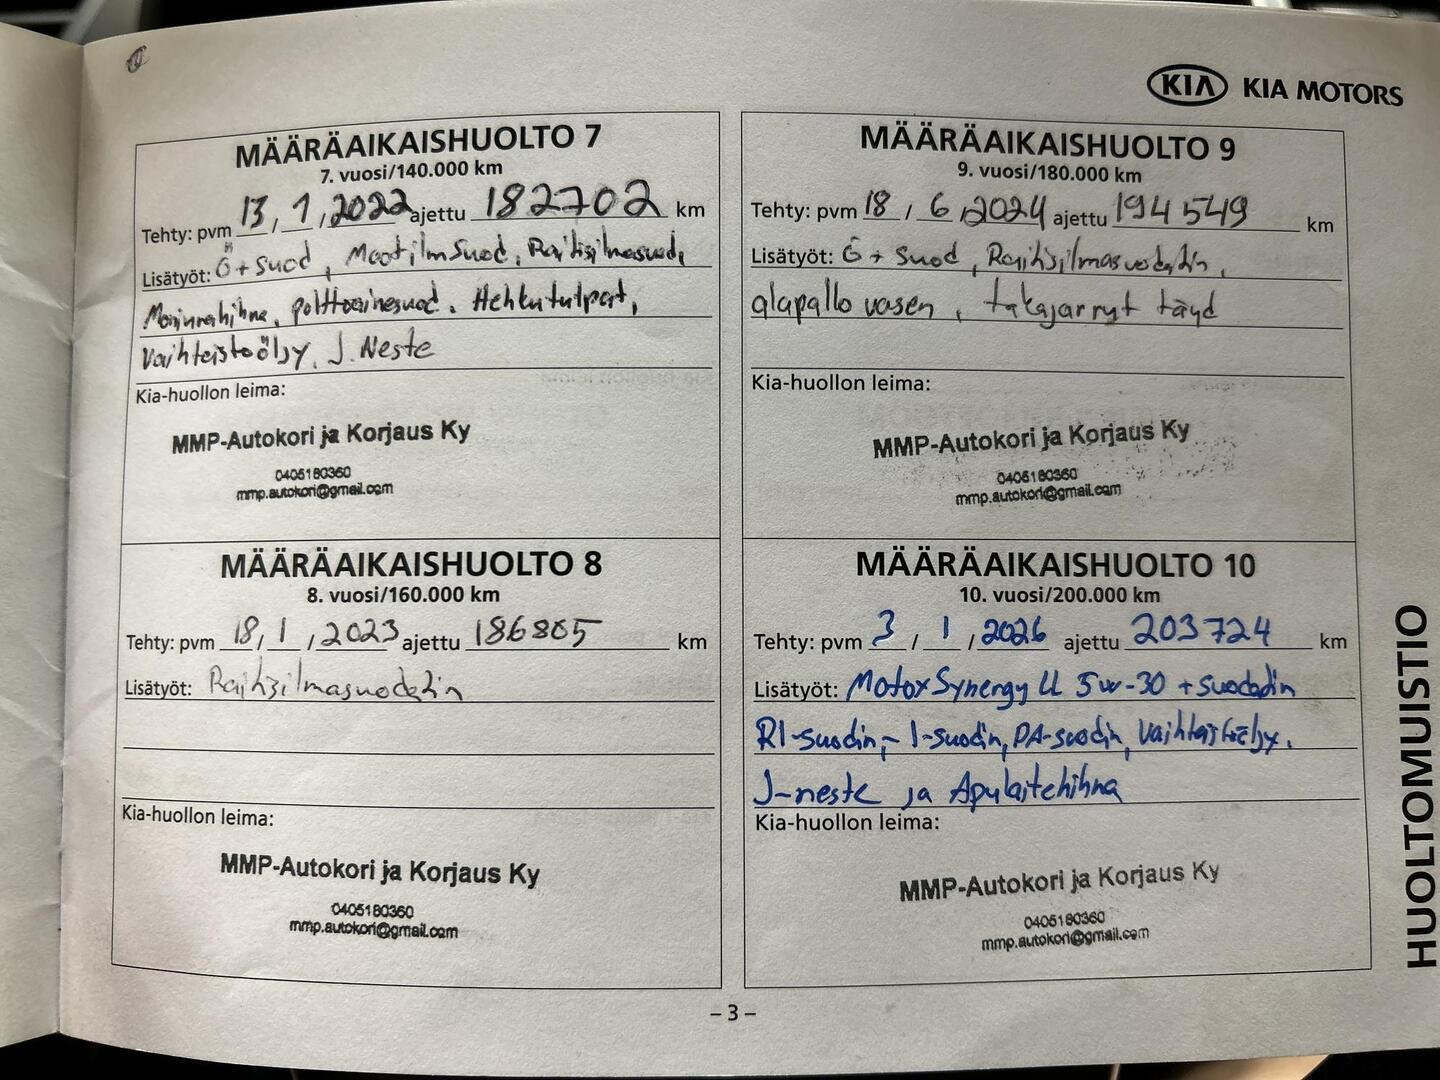 KIA KIA MOTORS
MÄÄRÄAIKAISHUOLTO 7
7. vuosi/140.000 km
Tehty: pvm 13, 1, 2022 ajettu 182702 km
Lisätyöt: Ö + suod, Mootilmsuod, Raitisilmasuod,
Moniurahihna, polttoainesuod. Hehkutulpat,
Vaihteistoöljy, J. Neste
Kia-huollon leima:
MMP-Autokori ja Korjaus Ky
0405180360
mmp.autokori@gmail.com
MÄÄRÄAIKAISHUOLTO 8
8. vuosi/160.000 km
Tehty: pvm 18, 1, 2023 ajettu 186805 km
Lisätyöt: Raitisilmasuodatin
Kia-huollon leima:
MMP-Autokori ja Korjaus Ky
0405180360
mmp.autokori@gmail.com
MÄÄRÄAIKAISHUOLTO 9
9. vuosi/180.000 km
Tehty: pvm 18 / 6, 2024 ajettu 194549 km
Lisätyöt: Ö + suod, Raitisilmasuodatin,
alapallo vasen, takajarrut täyd
Kia-huollon leima:
MMP-Autokori ja Korjaus Ky
0405180360
mmp.autokori@gmail.com
MÄÄRÄAIKAISHUOLTO 10
10. vuosi/200.000 km
Tehty: pvm 3 / 1 / 2026 ajettu 203724 km
Lisätyöt: Motox Synergy LL 5w-30 + suodatin
RI-suodin,- I-suodin, PA-suodin, Vaihteistoöljy.
J-neste ja Apulaitehihna
Kia-huollon leima:
MMP-Autokori ja Korjaus Ky
0405180360
mmp.autokori@gmail.com
HUOLTOMUISTIO
– 3 –